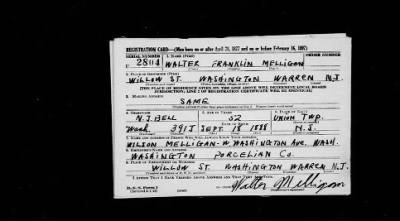 REGISTRATION CARD—(Men born on or after April 28, 1877 and on or before February 16, 1897)
SERIAL NUMBER 1. NAME (Print) ORDER NUMBER
U 2804 WALTER FRANKLIN MELLIGON
2. PLACE OF RESIDENCE (Print)
WILLOW ST. WASHINGTON WARREN N.J.
[THE PLACE OF RESIDENCE GIVEN ON THE LINE ABOVE WILL DETERMINE LOCAL BOARD
JURISDICTION; LINE 2 OF REGISTRATION CERTIFICATE WILL BE IDENTICAL]
3. MAILING ADDRESS
SAME
4. TELEPHONE 5. AGE IN YEARS 6. PLACE OF BIRTH
N.J. BELL 52 UNION TWP.
DATE OF BIRTH
Wash. 391J SEPT. 18 1888 N.J.
7. NAME AND ADDRESS OF PERSON WHO WILL ALWAYS KNOW YOUR ADDRESS
WILSON MELLIGAN-W. WASHINGTON AVE. WASH.
8. EMPLOYER'S NAME AND ADDRESS
WASHINGTON PORCELIAN CO
9. PLACE OF EMPLOYMENT OR BUSINESS
WILLOW ST. WASHINGTON WARREN N.J.
I AFFIRM THAT I HAVE VERIFIED ABOVE ANSWERS AND THAT THEY ARE TRUE.
D. S. S. Form 1
Walter Melligon